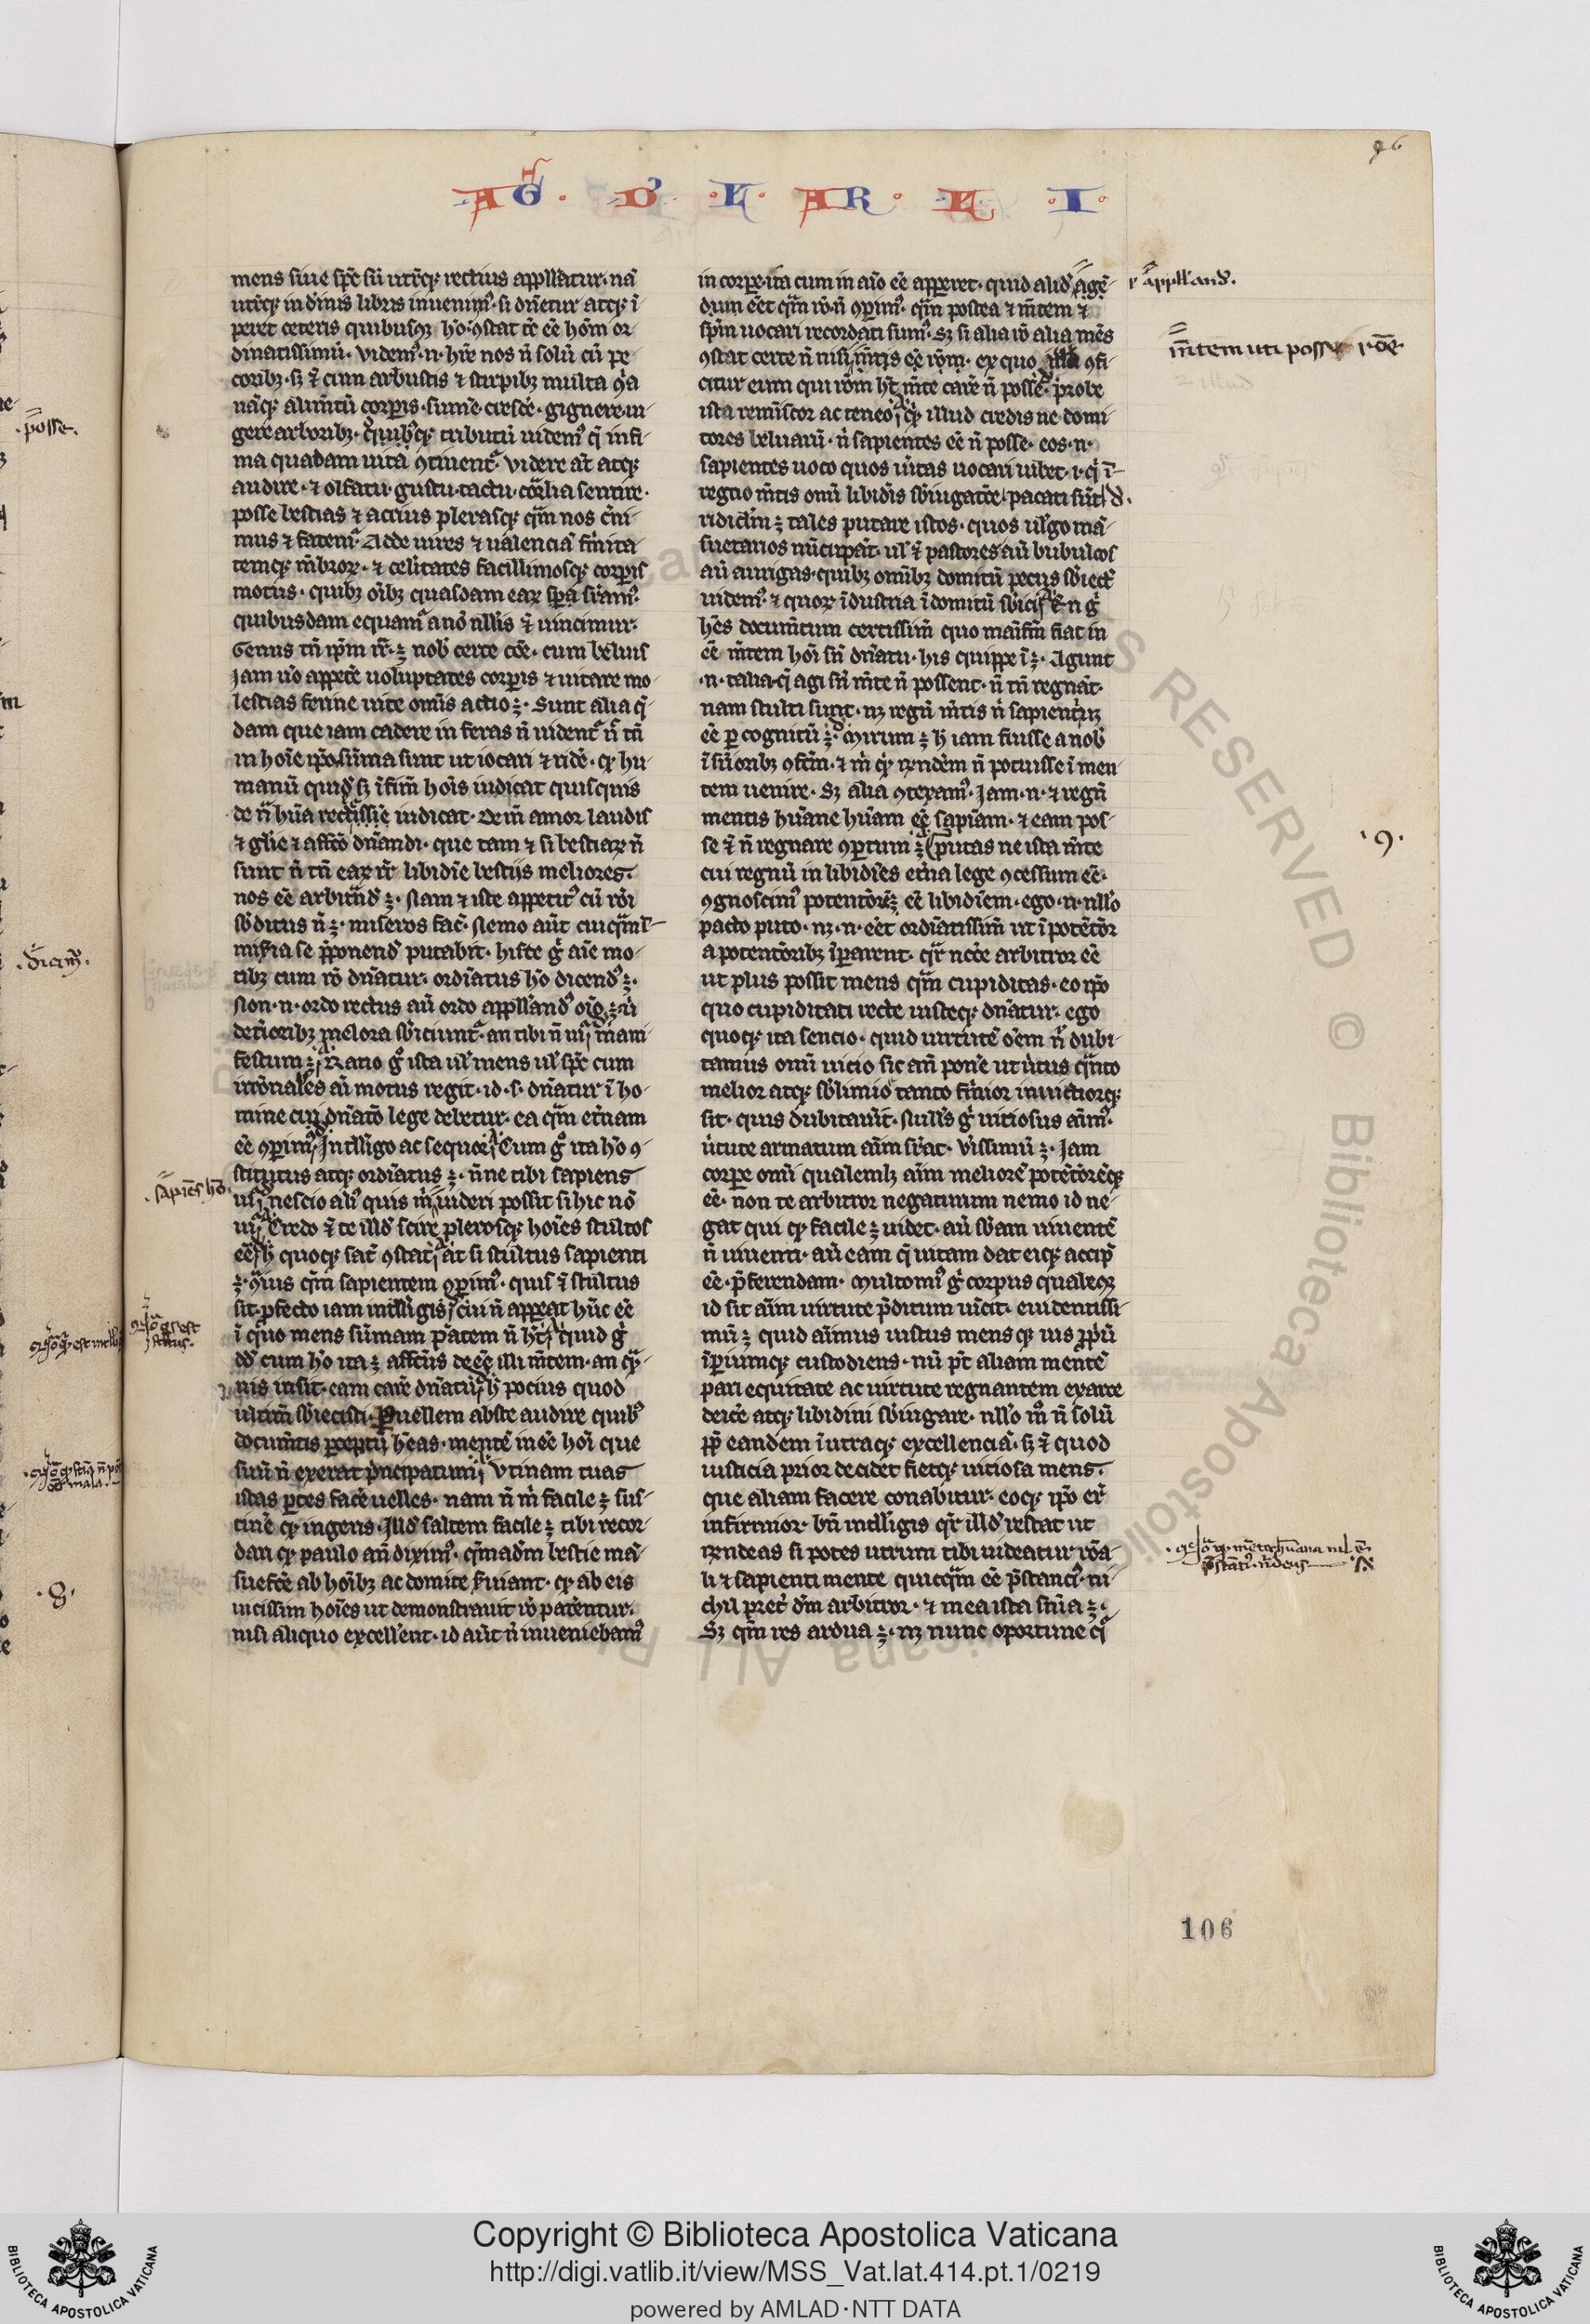 96
AG̅ · D' · L · AR · L · I ·
mens siue sp̅c su̅ utru̅q; rectius appllatur· na̅
utru̅q; in diuinis libris inuenim9· si dn̅etur atq; i̅
peret ceteris quibusq; ho· 9stat tc̅ ee̅ ho̅m or
dinatissimu̅· Videm9·n· hr̅e nos n̅ solu̅ cu̅ pe
corib; s; &̅ cum arbustis & stirpib; multa 9ia
na̅q; alim̅tu̅ corpis sume̅ cresc̅e· gignere ui
gere arborib; quib9q; tributu̅ uidem9 q̅ infi
ma quadam uita 9tinent᷑· Videre at̅ atq;
audire· & olfatu gustu tactu corꝑalia sentire·
posse bestias & acrius plerasq; qm̅ nos c̅ni
mus & fatem᷑· Adde uires & ualencia̅ firmita
temq; m̅broꝝ· & celitates facillimosq; corpis
motus· quib; oi̅b; quasdam eaꝝ sꝑam9·
quibusdam equam᷑ a no̅nllis &̅ uincimur·
Genus tn̅ ip̅m rꝝ ꝫ nob̅ certe co̅e· cum beluis
Jam uo̅ appetē uoluptates corpis & uitare mo
lestias ferine uite omīs actio ꝫ· Sunt alia q̅
dam que iam cadere in feras n̅ uident᷑ n̅ tn̅
in hoi̅e ip̅o su̅ma sunt ut iocari & ride̅· q; hu
manu̅ quid̅ s; i̅fim̅ hois̅ iudicat quisquis
de n̅a hu̅a rectissi̅e iudicat· Dein̅ amor laudis
& glie̅ & affc̅o dn̅andi· que tam & si bestiaꝝ n̅
sunt n̅ tn̅ eaꝝ rꝝ libidi̅e bestijs meliores·
nos ee̅ arbitn̅d ꝫ· Nam & iste appetit9 cu̅ ro̅i
sb̅ditus n̅ ꝫ· miseros fac̅· Nemo aut̅ cuiq̅m
mis̅ia se p̅ponend̅ putabit· hisce g̅ aie̅ mo
tib; cum ro̅ dn̅atur· ordinatus ho̅ dicend9 ꝫ·
Non·n· ordo rectus au̅ ordo appllāndꝰ oi̅o ꝫ u̅
deteriorib; meliora sb̅iciunt᷑ an tibi n̅ ur̅ mani
festum ꝫ· Ratio g̅ ista ul̅ mens ul̅ sp̅c cum
irro̅nales ai̅ motus regit· id·s· dn̅atur i̅ ho
mine cui dn̅ato̅ lege debetur· ea qm̅ etn̅am
ee̅ 9perim9· Jntelligo ac sequor· Cum g̅ ita ho̅ 9
stitutus atq; ordi̅atus ꝫ· n̅ne tibi sapiens
ur̅· nescio ali9 quis m̅ uideri possit si hic no̅
ur̅· Credo &̅ te illd̅ scire plerosq; hoi̅es stultos
ee̅· h̅ quoq; sat̅ 9stat· at si stultus sapienti
ꝫ 9i̅us qm̅ sapientem 9perim9· quis &̅ stultus
sit· p̅fecto iam intelligis· cui n̅ appeat̅ hu̅c ee̅
i̅ quo mens su̅mam p̅atem n̅ ht̅· quid g̅
dd̅ cum ho̅ ita ꝫ affc̅us deee̅ illi m̅tem· an q̅
uis insit· eam care̅ dn̅atu· h̅ pocius quod
ultim̅ sb̅iecisti· Puellem abste audire quib9
docum̅tis ꝑceptu̅ he̅as· mente̅ inee̅ hoi̅ que
suu̅ n̅ exerat p̅ncipatum· Vtinam tuas
istas ꝑtes face̅ uelles· nam n̅ m̅ facile ꝫ sus
tine̅ q; ingeris· Jlld̅ saltem facile ꝫ tibi recor
dari q; paulo an̅ dixim9· qm̅adm̅ bestie ma̅
suefc̅e ab hoi̅b; ac domite s̅uiant· q; ab eis
uicissim hoi̅es ut demonstrauit ro̅ pat̅entur·
nisi aliquo excellent· id aut̅ n̅ inueniebam9
in corpe· ita cum in ai̅o ee̅ apperet· quid alid̅ age̅
dum eet̅ qm̅ ro̅ n̅ 9perim9· qm̅ postea & m̅tem &
sp̅m uocari recordati sum9· S; si alia ro̅ alia me̅s
9stat certe n̅ nisi m̅tis ee̅ ro̅m· ex quo illa 9fi
citur eum qui ro̅m ht̅ m̅te care̅ n̅ posse̅· probe
ista remi̅scor ac teneo· q; illud credis ne domi
tores beluaru̅· n̅ sapientes ee̅ n̅ posse· eos·n·
sapientes uoco quos u̅itas uocari iubet· i· q̅ i̅
regno m̅tis omi̅ libidi̅s sb̅iugatōe pacati su̅t·
ridiclm̅ ꝫ tales putare istos· quos ul̅go ma̅
suetarios nu̅cupa̅t· ul̅ &̅ pastores au̅ bubulcos
au̅ aurigas· quib; omi̅b; domitu̅ pecus sb̅iect̅
uidem9· & quoꝝ i̅dustria i̅domitu̅ sb̅ici· En g̅
he̅s docum̅tum certissim̅ quo maifm̅ fiat in
ee̅ m̅tem hoi̅ sn̅ dn̅atu· his quippe i̅ ꝫ· Agunt
·n· talia q̅ agi sn̅ m̅te n̅ possent· n̅ tn̅ regna̅t·
nam stulti sunt· n; regnu̅ m̅tis n̅ sapientiu̅
ee̅ ꝑcognitu̅ ꝫ· Mirum ꝫ h̅ iam fuisse a nob̅
i̅ su̅iorib; 9fcm̅· & m̅ q; rn̅dem̅ n̅ potuisse i̅ men
tem uenire· S; alia 9texam9· Jam·n· & regnu̅
mentis hu̅ane hu̅am ee̅ sapi̅am· & eam pos
se &̅ n̅ regnare 9ꝑtum ꝫ· putas ne ista m̅te
cui regnu̅ in libidi̅es et̅na lege 9cessum ee̅
9gnoscim9 potentio̅rē ꝫ ee̅ libidi̅em· ego·n· nllo̅
pacto puto· n;·n· eet̅ ordi̅atissim̅ ut i̅potētōr
a potentio̅rib; i̅parent· qr̅ nēce arbitror ee̅
ut plus possit mens qm̅ cupiditas· eo ip̅o
quo cupiditati recte iusteq; dn̅atur· ego
quoq; ita sencio· quid uirtute̅ oe̅m n̅ dubi
tamus omi̅ uicio sic an̅ pone̅ ut u̅tus q̅nto
melior atq; sb̅limio᷑ tanto firmior inuictiorq;
sit· quis dubitau̅it· Null9 g̅ uitiosus anim9·
u̅tute armatum aim̅ su̅at· Ve̅issimu̅ ꝫ· Jam
corpe omi̅ qualemlib; aim̅ meliore̅ potētōrēq;
ee̅· non te arbitror negaturum nemo id ne
gat qui q; facile ꝫ uidet· au̅ sb̅am uiuente̅
n̅ uiuenti· au̅ eam q̅ uitam dat eiq; accip̅
ee̅· p̅ferendam· Multomi9 g̅ corpus qualecq;
id sit aim̅ uirtute p̅ditum ui̅cit· euidentissi
mu̅ ꝫ quid aimus iustus mens q; ius ꝓpriu̅
i̅periumq; custodiens· nu̅ pt̅ aliam mente̅
pari equitate ac uirtute regnantem ex arce
deice̅ atq; libidini sb̅iugare· nllo̅ mo̅ n̅ solu̅
ꝓp̅ eandem i̅ utraq; excellencia̅· s; &̅ quod
iusticia prior decidet fietq; uitiosa mens·
que aliam facere conabitur· eoq; ip̅o er̅
infirmior· bn̅ intelligis qr̅ illd̅ restat ut
rn̅deas si potes utrum tibi uideatur ro̅a
li & sapienti mente quicq̅m ee̅ p̅stanci9· ni
chil pret̅ dm̅ arbitror· & mea ista snia̅ ꝫ·
S; qm̅ res ardua ꝫ· n; nunc oportune q̅
posse·
·dicim9·
·8·
·sapie̅s ho̅·
applland̅·
m̅tem uti posse
·9·
106
Copyright © Biblioteca Apostolica Vaticana
http://digi.vatlib.it/view/MSS_Vat.lat.414.pt.1/0219
powered by AMLAD·NTT DATA
BIBLIOTECA APOSTOLICA VATICANA
BIBLIOTECA APOSTOLICA VATICANA